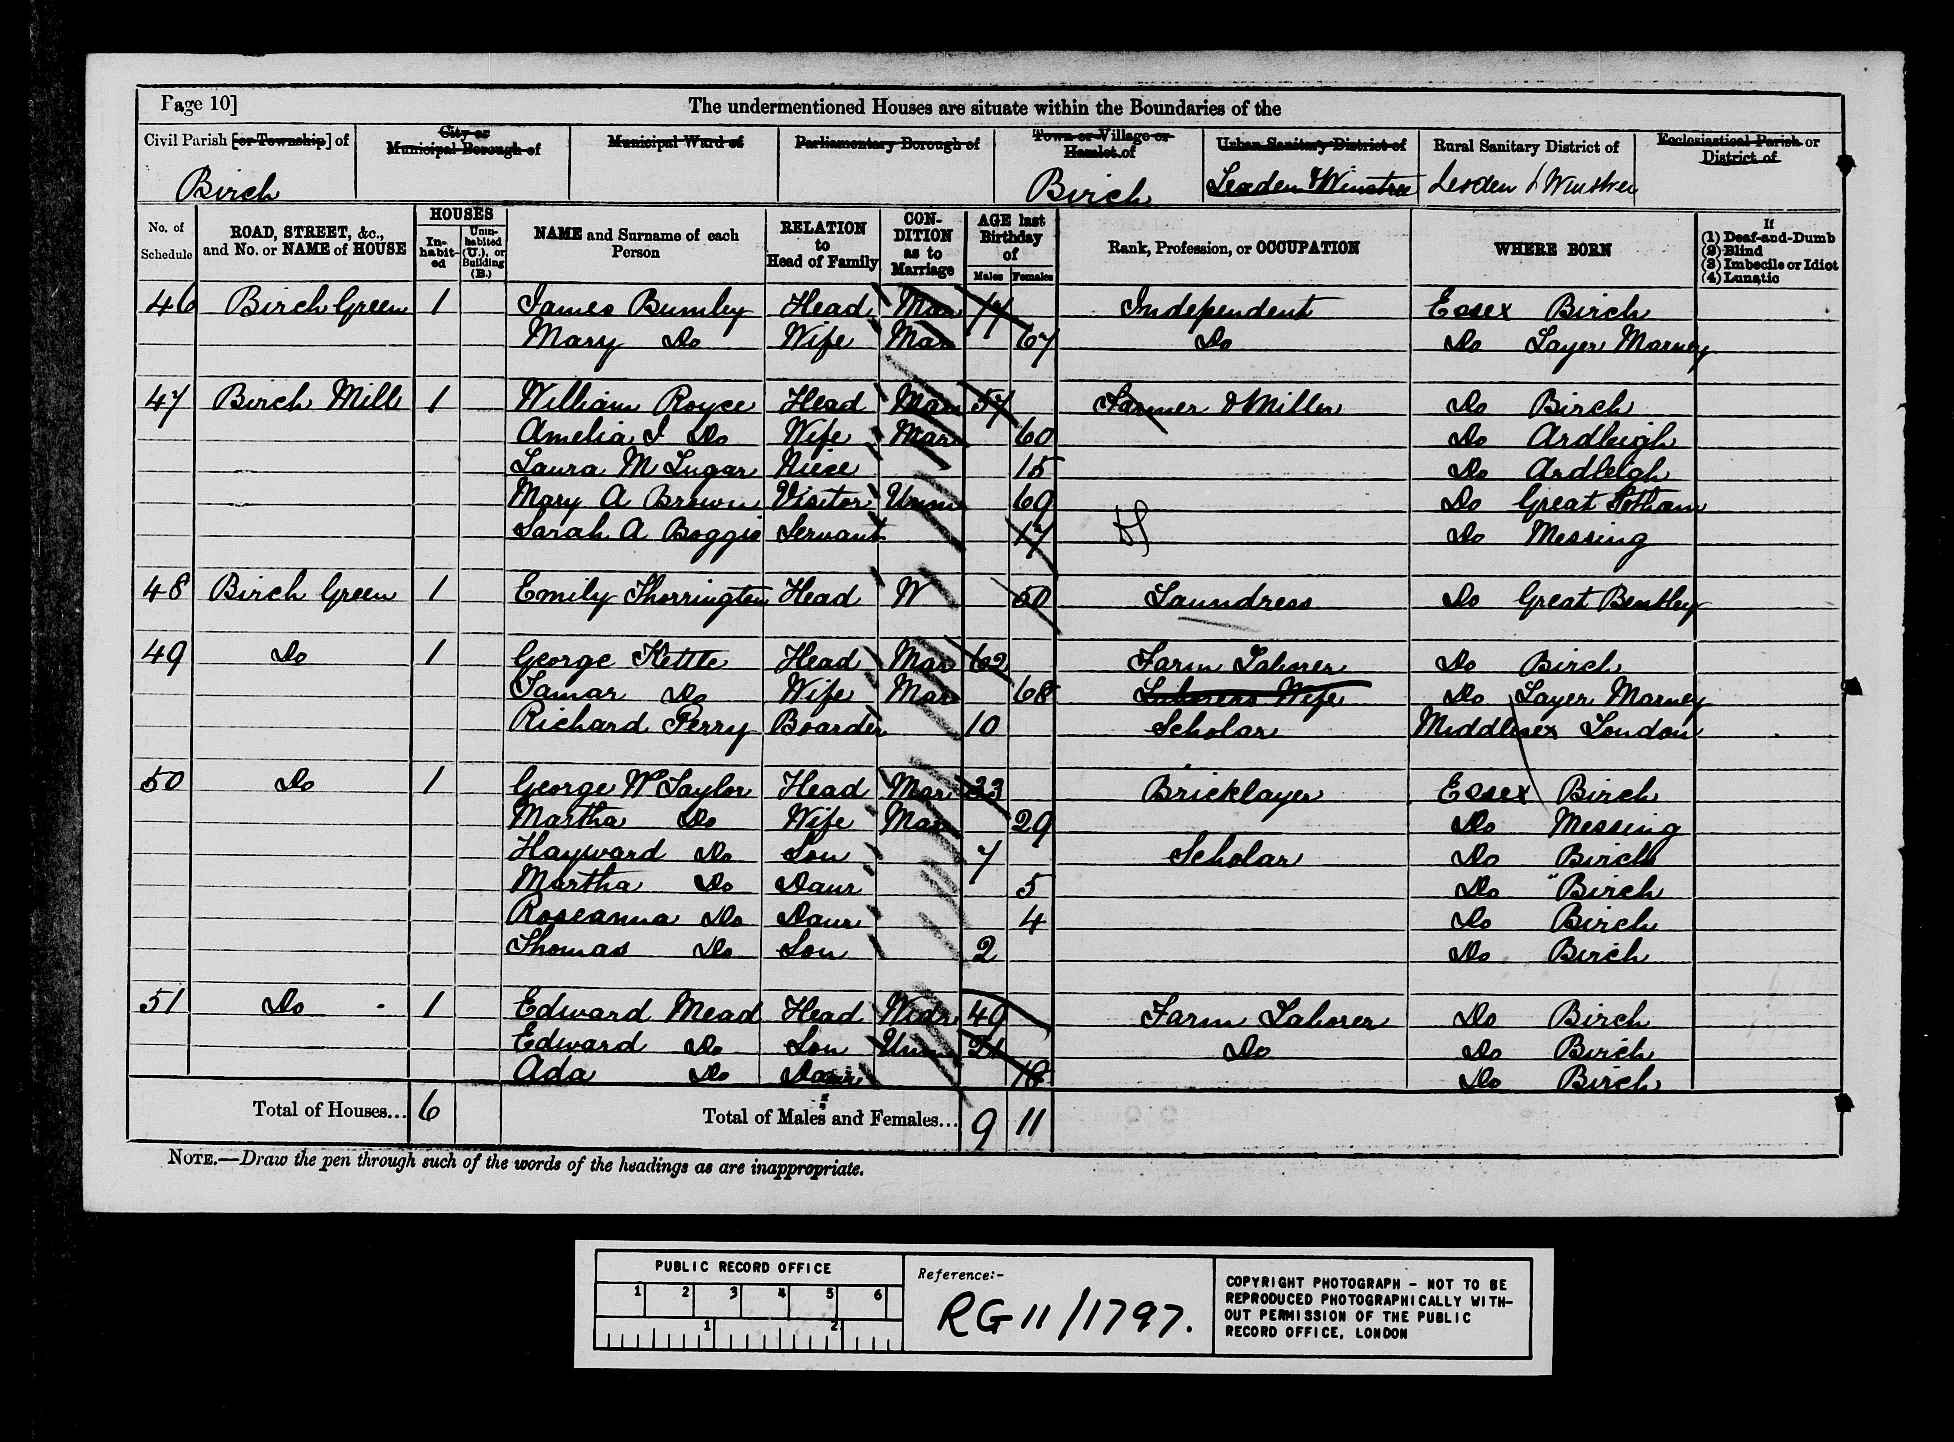 Page 10]
The undermentioned Houses are situate within the Boundaries of the
Civil Parish [or Township] of
City or Municipal Borough of
Municipal Ward of
Parliamentary Borough of
Town or Village or Hamlet of
Urban Sanitary District of
Rural Sanitary District of
Ecclesiastical Parish or District of
Birch Birch Lexden & Winstree Lexden & Winstree
No. of Schedule
ROAD, STREET, &c., and No. or NAME of HOUSE
HOUSES
In-habit-ed
Unin-habited (U.), or Building (B.)
NAME and Surname of each Person
RELATION to Head of Family
CON-DITION as to Marriage
AGE last Birthday of
Males Females
Rank, Profession, or OCCUPATION
WHERE BORN
If
(1) Deaf-and-Dumb
(2) Blind
(3) Imbecile or Idiot
(4) Lunatic
46 Birch Green 1 James Bumley Head Mar 77 Independent Essex Birch
Mary Do Wife Mar 67 Do Do Layer Marney
47 Birch Mill 1 William Royce Head Mar 57 Farmer & Miller Do Birch
Amelia I Do Wife Mar 60 Do Ardleigh
Laura M Lugar Niese 15 Do Ardleigh
Mary A Brown Visitor Unm 69 Do Great Totham
Sarah A Boggis Servant 17 Do Messing
48 Birch Green 1 Emily Thorrington Head W 50 Laundress Do Great Bentley
49 Do 1 George Kettle Head Mar 62 Farm Laborer Do Birch
Tamar Do Wife Mar 68 Laborers Wife Do Layer Marney
Richard Perry Boarder 10 Scholar Middlesex London
50 Do 1 George Wm Taylor Head Mar 33 Bricklayer Essex Birch
Martha Do Wife Mar 29 Do Messing
Hayward Do Son 7 Scholar Do Birch
Martha Do Daur 5 Do Birch
Roseanna Do Daur 4 Do Birch
Thomas Do Son 2 Do Birch
51 Do 1 Edward Mead Head Widr 49 Farm Laborer Do Birch
Edward Do Son Unm 21 Do Do Birch
Ada Do Daur 18 Do Birch
Total of Houses... 6 Total of Males and Females... 9 11
NOTE.—Draw the pen through such of the words of the headings as are inappropriate.
PUBLIC RECORD OFFICE
1 2 3 4 5 6
1 2
Reference:-
RG 11/1797.
COPYRIGHT PHOTOGRAPH - NOT TO BE
REPRODUCED PHOTOGRAPHICALLY WITH-
OUT PERMISSION OF THE PUBLIC
RECORD OFFICE, LONDON